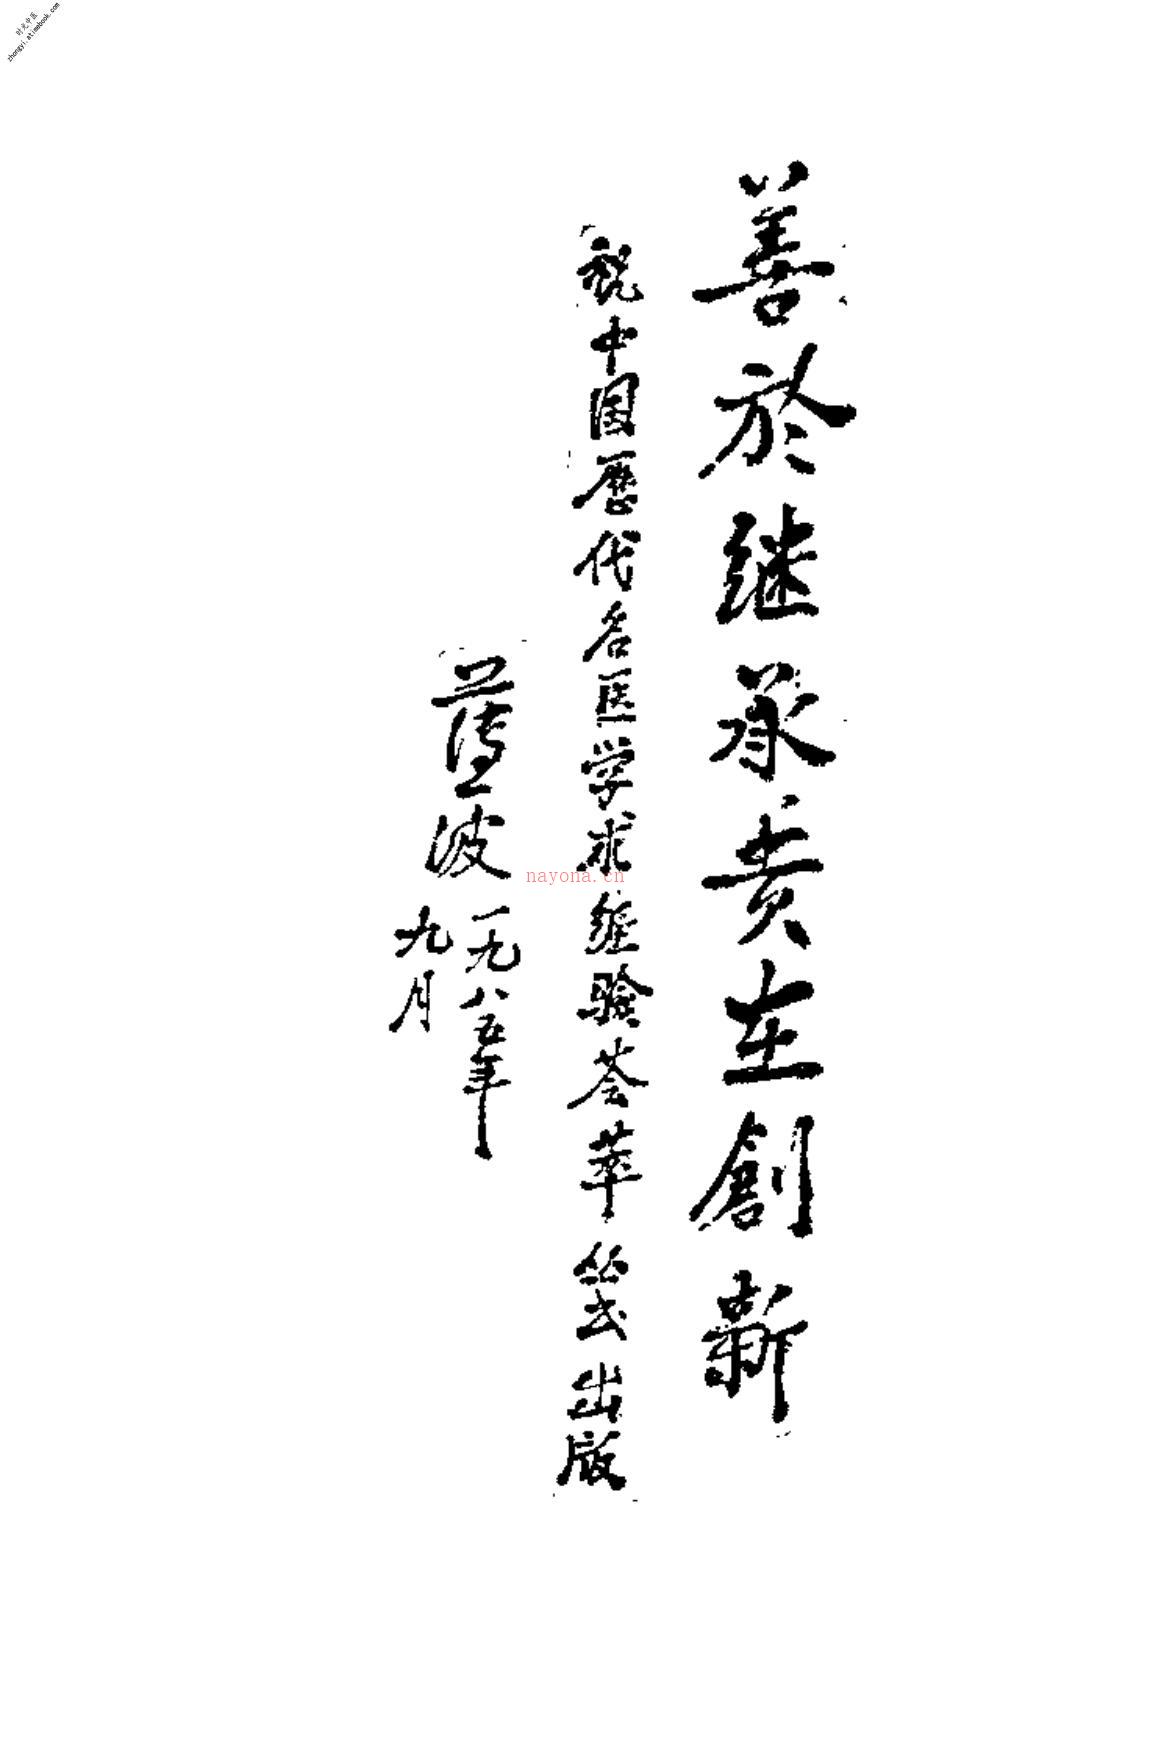 时光中医
zhongyi.atimebook.com
善於继承贵在創新
祝中国歷代名医学术经验荟萃丛书出版
薄一波 一九八五年
九月
nayona.cn